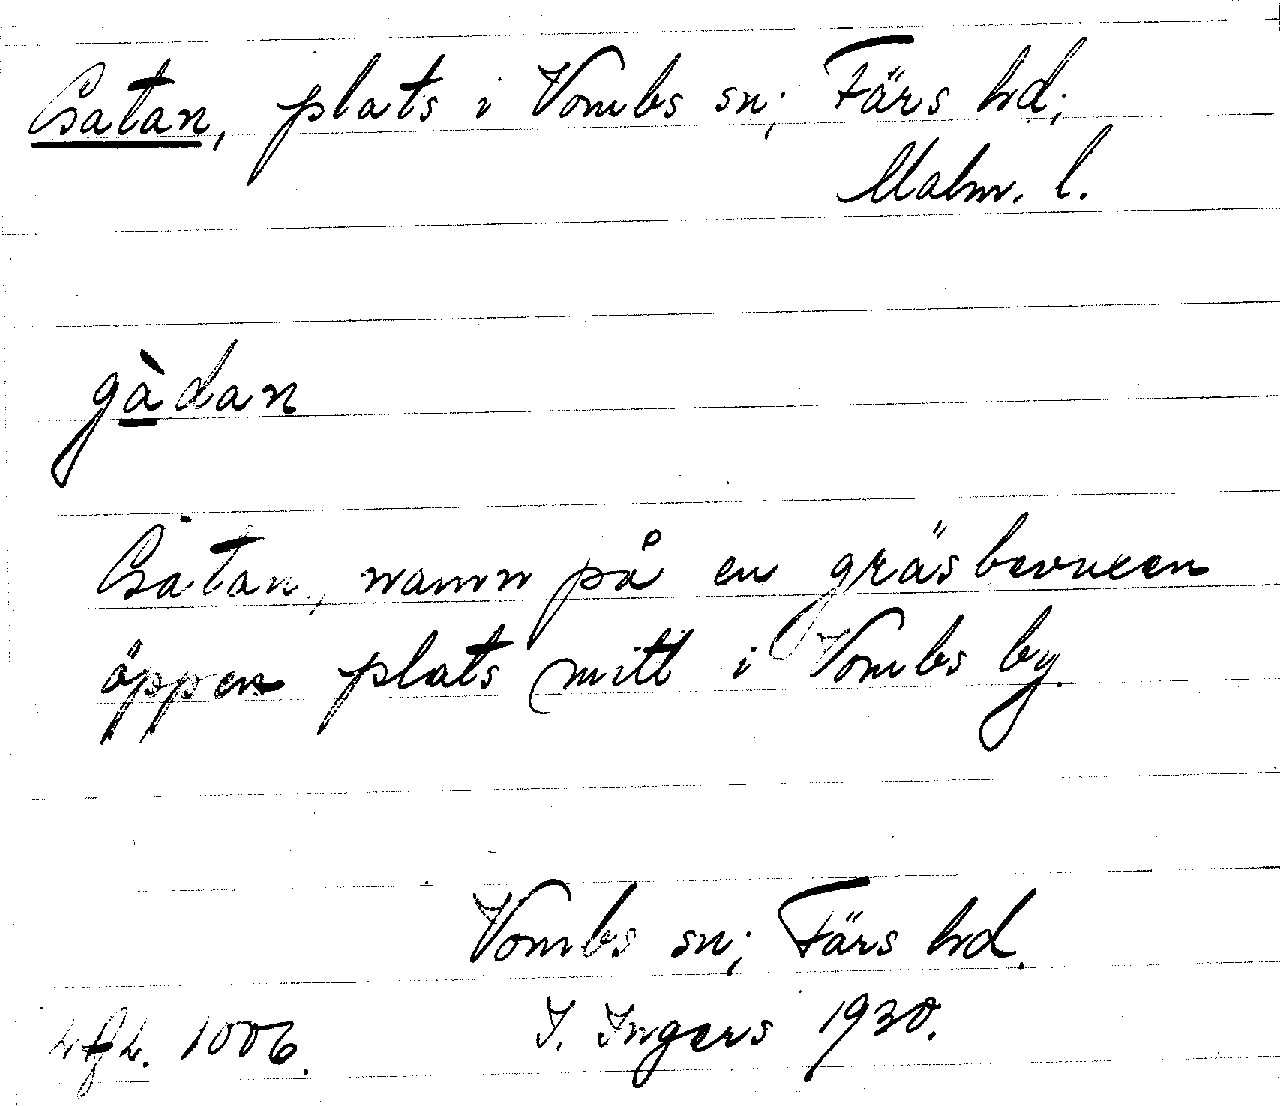 Gatan, plats i Vombs sn; Färs hd;
Malm. l.
gàdan
Gatan, namn på en gräsbevuxen
öppen plats mitt i Vombs by.
Vombs sn; Färs hd.
1006. I. Ingers 1930.